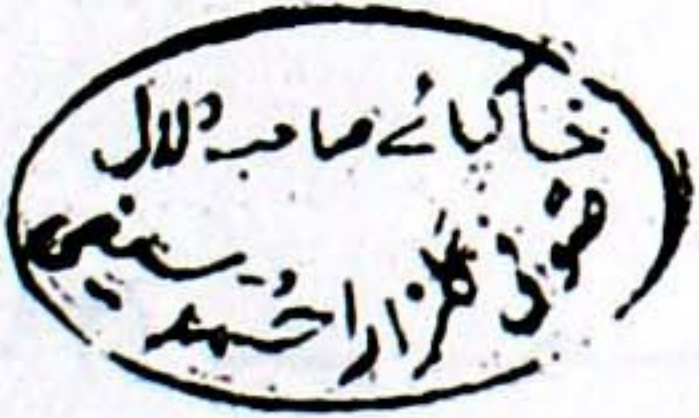 خاکپائے صاحبِ لال
صوفی گلزار احمد سیفی